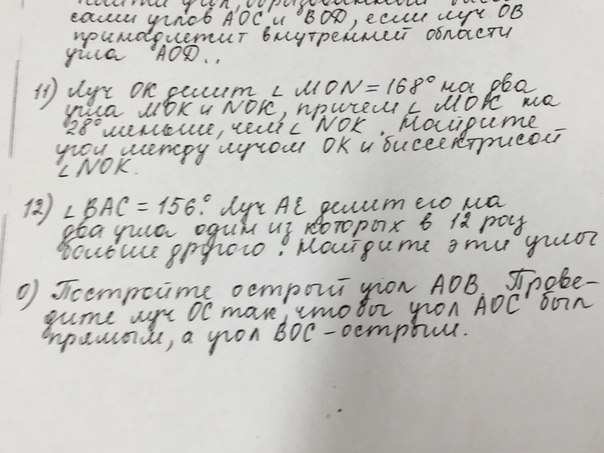 сами углов АОС и ВОД, если луч ОВ
принадлежит внутренней области
угла АОD..
11) Луч ОК делит ∠ MON = 168° на два
угла МОК и NOK, причем ∠ МОК на
28° меньше, чем ∠ NOK. Найдите
угол между лучом ОК и биссектрисой
∠ NOK.
12) ∠ BAC = 156°. Луч АЕ делит его на
два угла один из которых в 12 раз
больше другого. Найдите эти углы
0) Постройте острый угол АОВ. Прове-
дите луч ОС так, чтобы угол АОС был
прямым, а угол ВОС - острым.